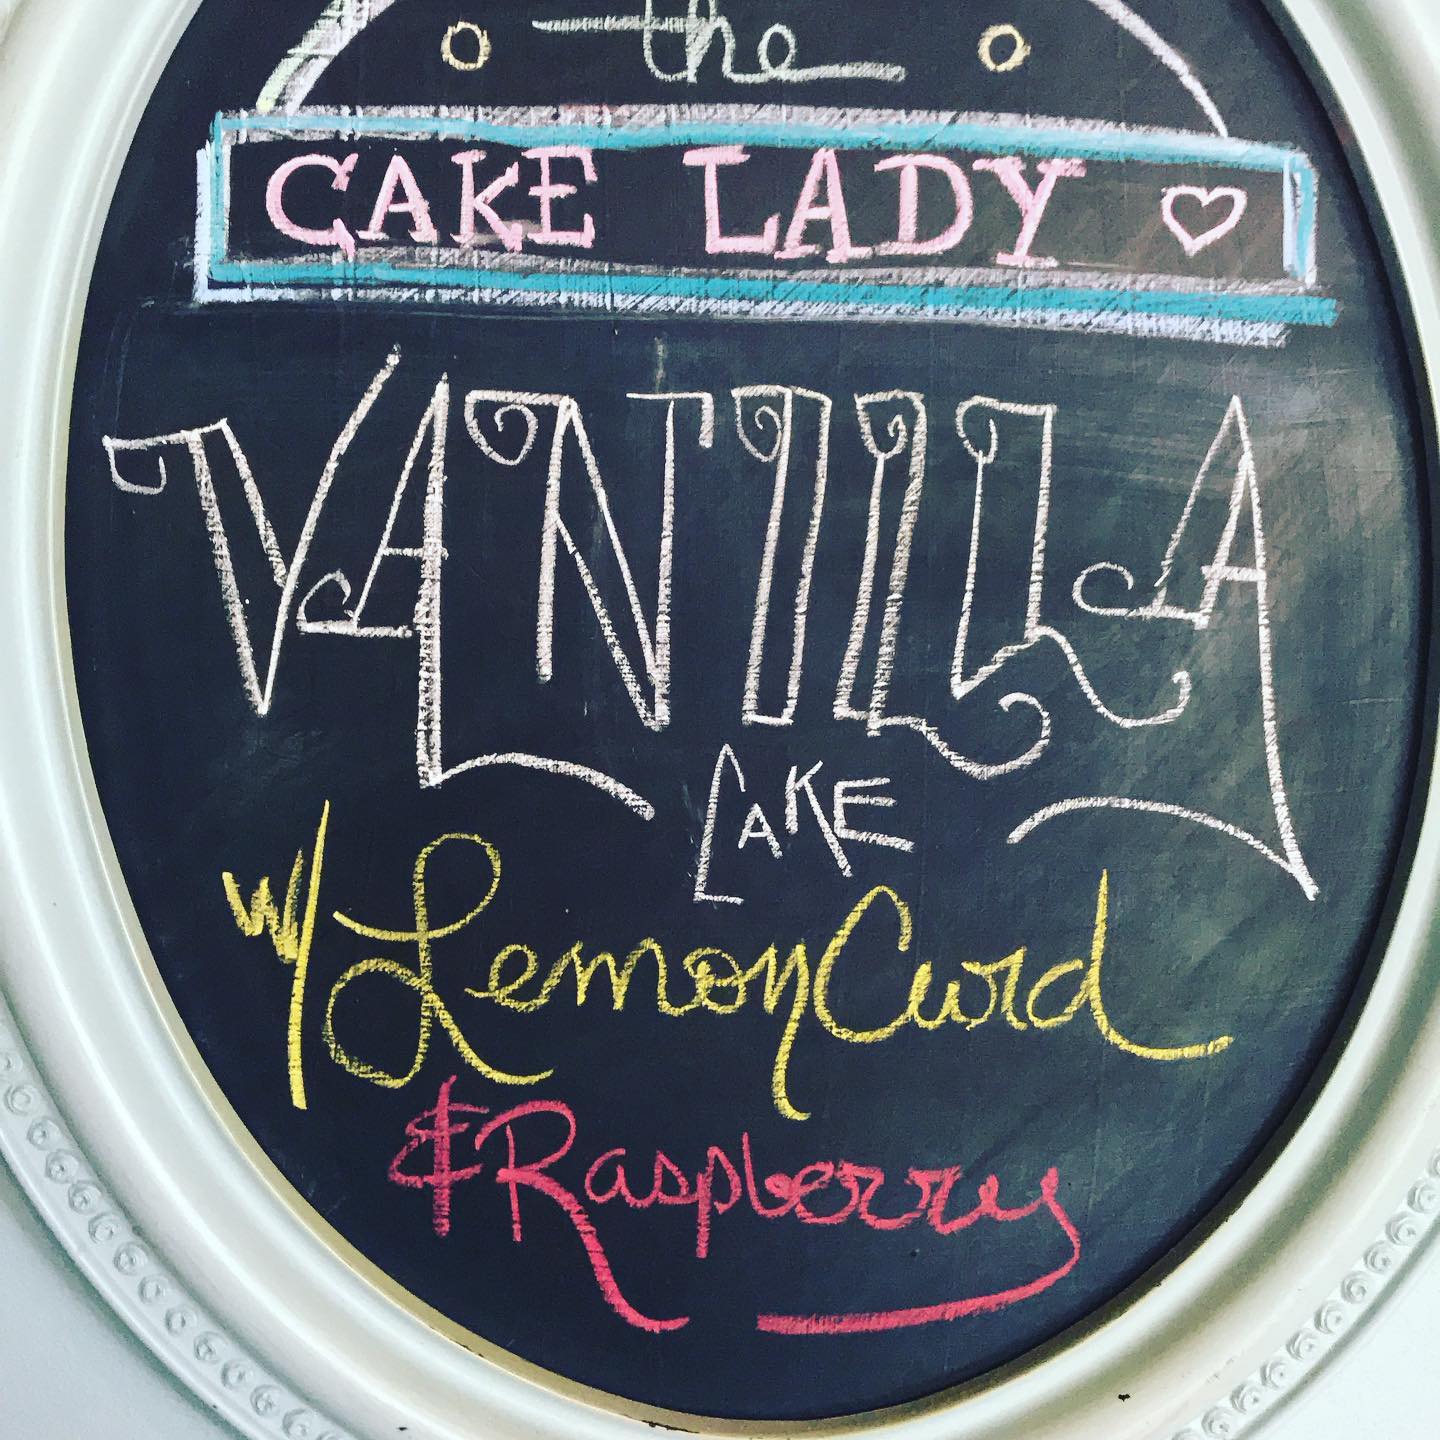 the
CAKE LADY
VANILLA
CAKE
w/ Lemon Curd
& Raspberry